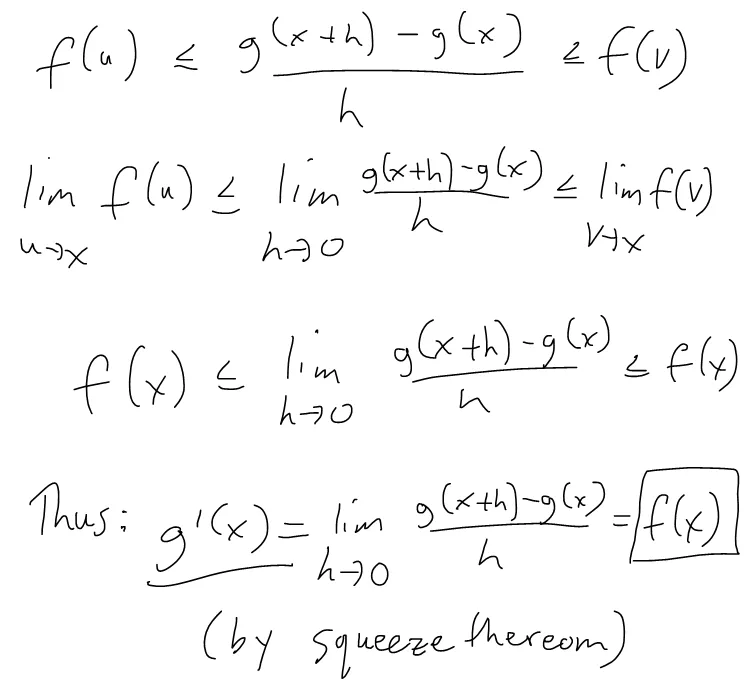 f(u) ≤ (g(x+h) - g(x))/h ≤ f(v)
lim_{u→x} f(u) ≤ lim_{h→0} (g(x+h)-g(x))/h ≤ lim_{v→x} f(v)
f(x) ≤ lim_{h→0} (g(x+h)-g(x))/h ≤ f(x)
Thus: g'(x) = lim_{h→0} (g(x+h)-g(x))/h = f(x)
(by squeeze thereom)